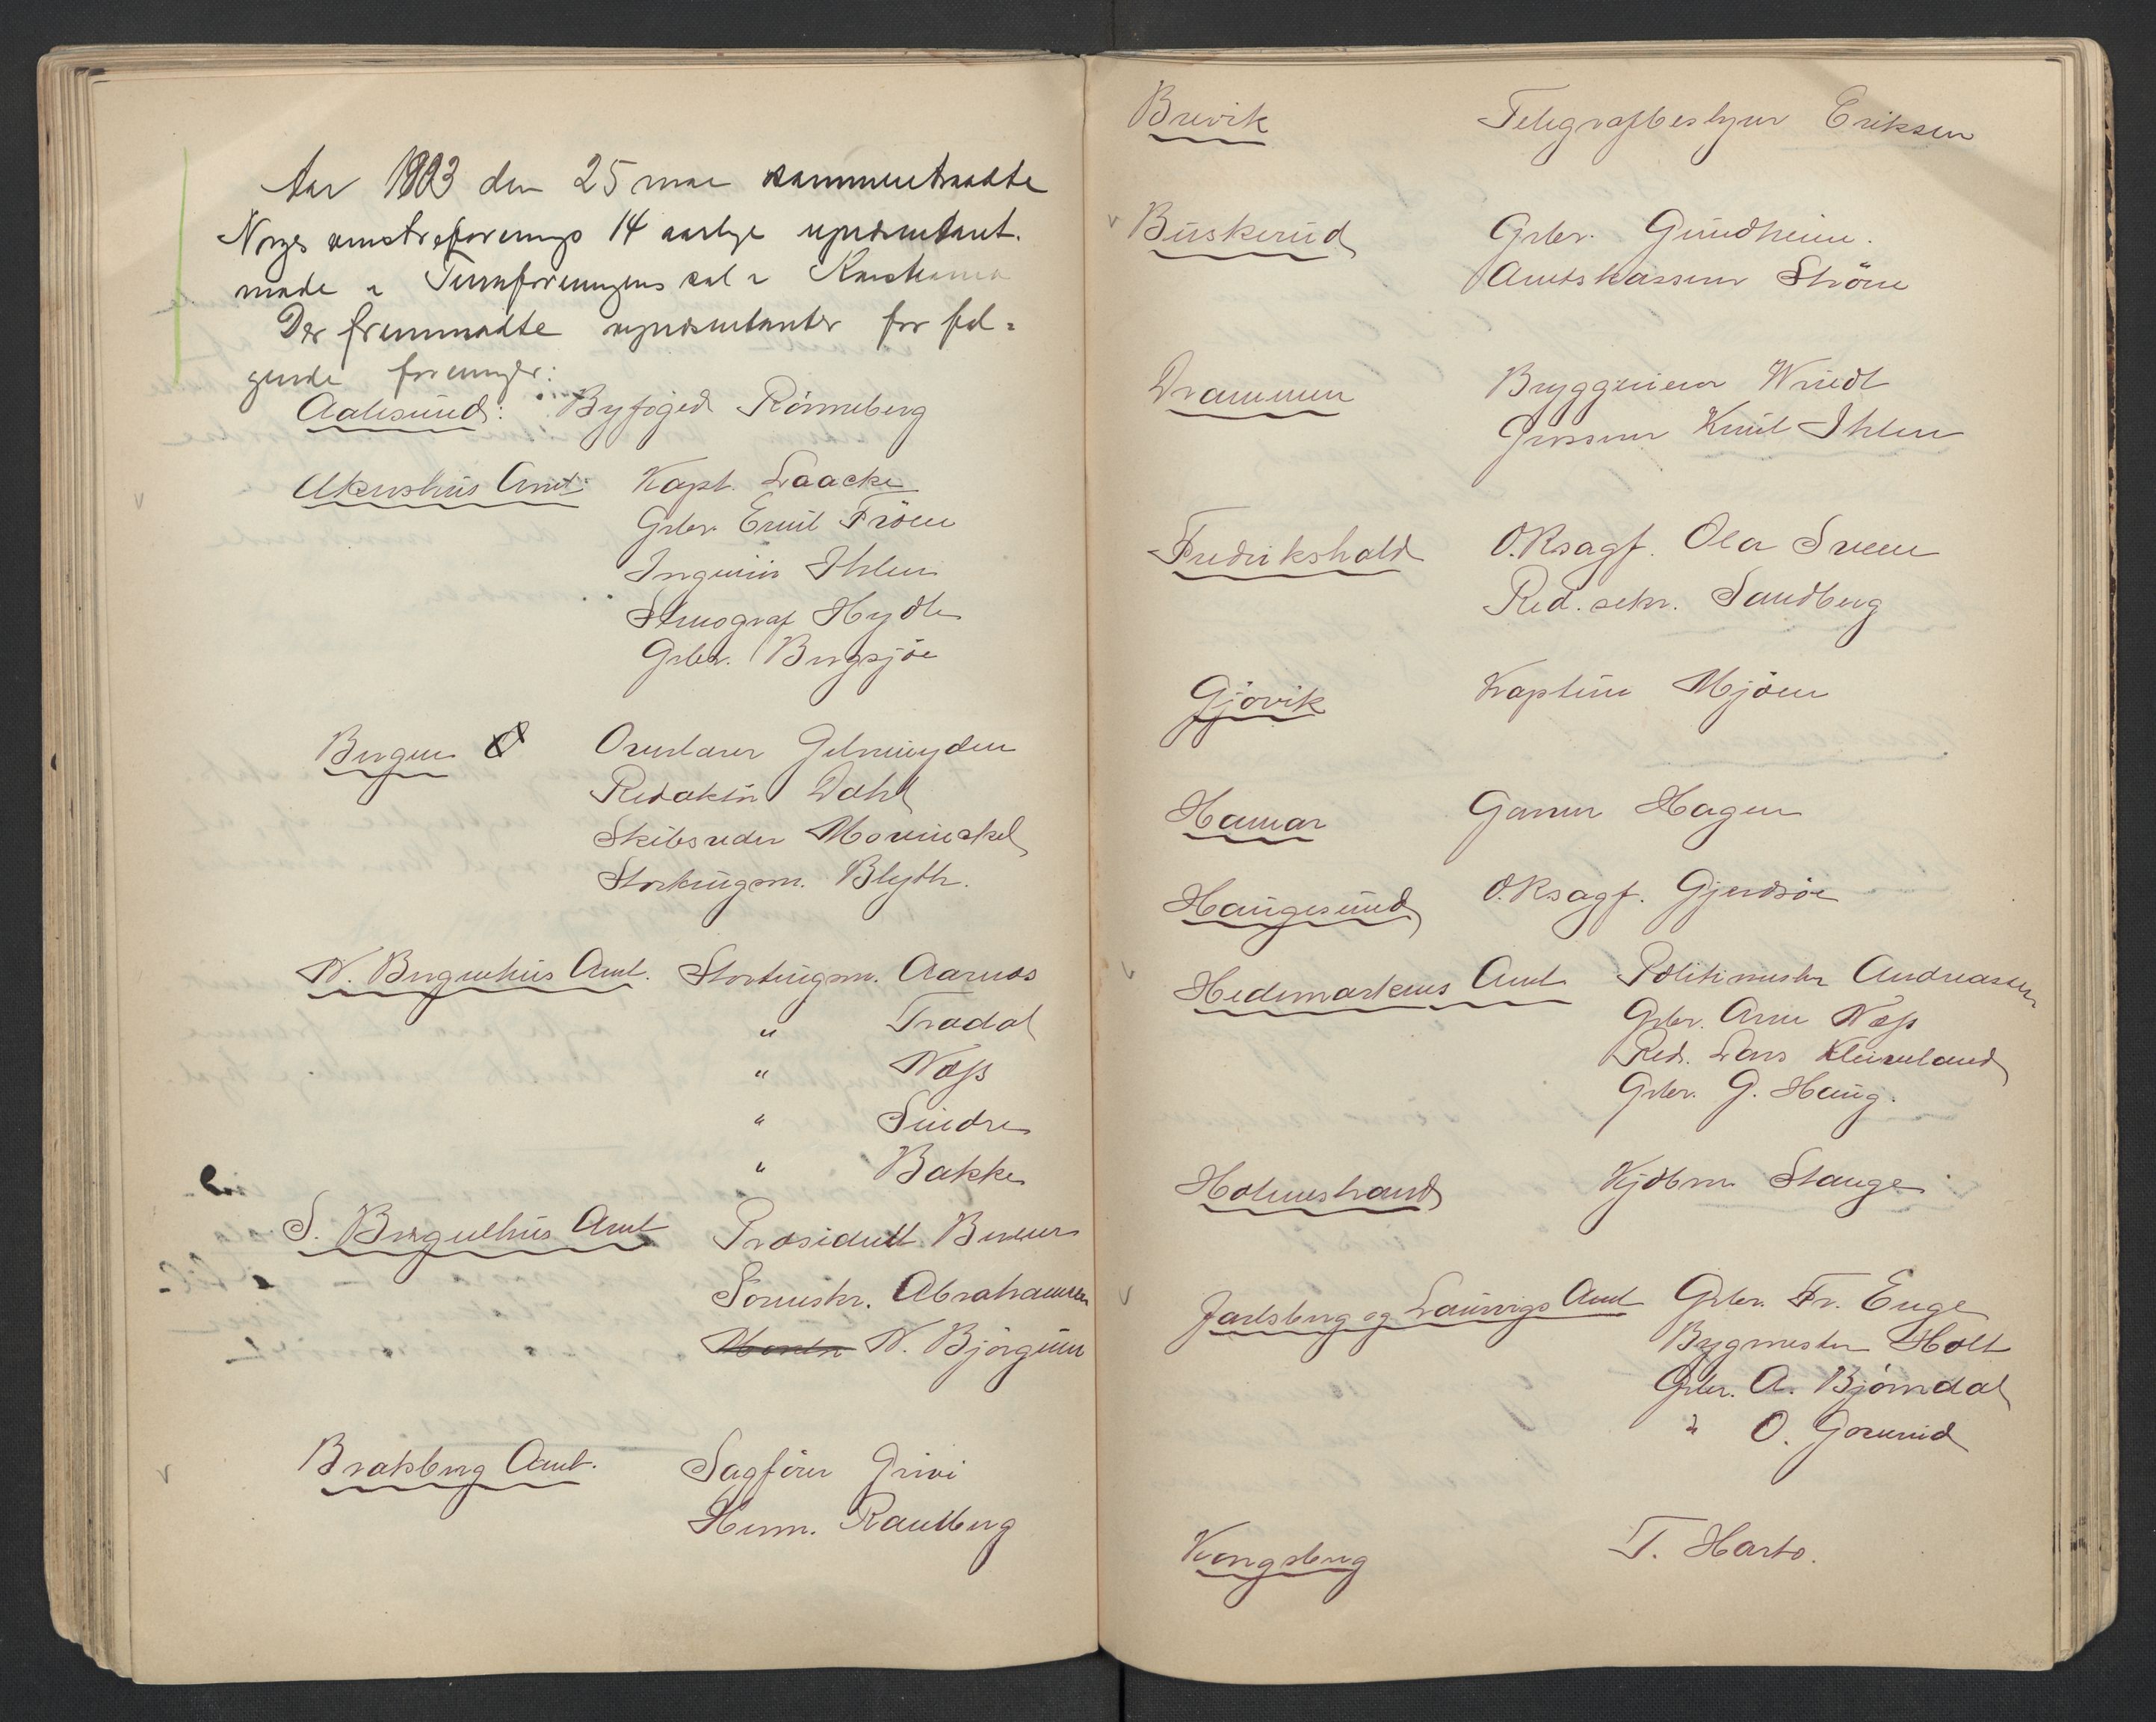 Aar 1903 den 25 mai sammentraadte
Norges venstreforenings 14 aarlige repræsentant.
møde i Turnforeningens sal i Kristiania
Der fremmødte repræsentanter for føl=
gende foreninger:
Aalesund: Byfoged Rönneberg
Akershus Amt: Kapt. Laacke
Grbr. Emil Fröen
Ingeniör Ihlen
Stenograf Hydle
Grbr. Bergsjöe
Bergen Overlærer Gelmuyden
Redaktör Dahl
Skibsreder Mowinckel
Stortingsm. Blydt.
N. Bergenhus Amt. Stortingsm. Aarnæs
" Tradal
" Næss
" Sindre
" Bakke
S. Bergenhus Amt Præsident
Sorenskr. Abrahamsen
N. Björgum
Bratsberg Amt. Sagförer Grivi
Herm. Rautberg
Brevik Telegrafbestyrer Eriksen
Buskerud Grbr. Gundheim.
Amtskasserer Ström
Drammen Bryggerieier Wriedt
Grosserer Emil Ihlen
Fredrikshald O.R.sagf. Ola Sveen
Red. sekr. Sandberg
Gjövik Kaptein Mjöen
Hamar Garver Hagen
Haugesund O.R.sagf. Gjerdsöe
Hedemarkens Amt Politimester Andreassen
Grbr. Arne Næss
Red. Lars Kleiveland
Grbr. G. Haug.
Holmestrand Kjöbm. Stange
Jarlsberg og Laurvigs Amt Grbr. Fr. Enge
Bygmester Holt
Grbr. A. Björndal
" O. Gorerud
Kongsberg T. Harto.